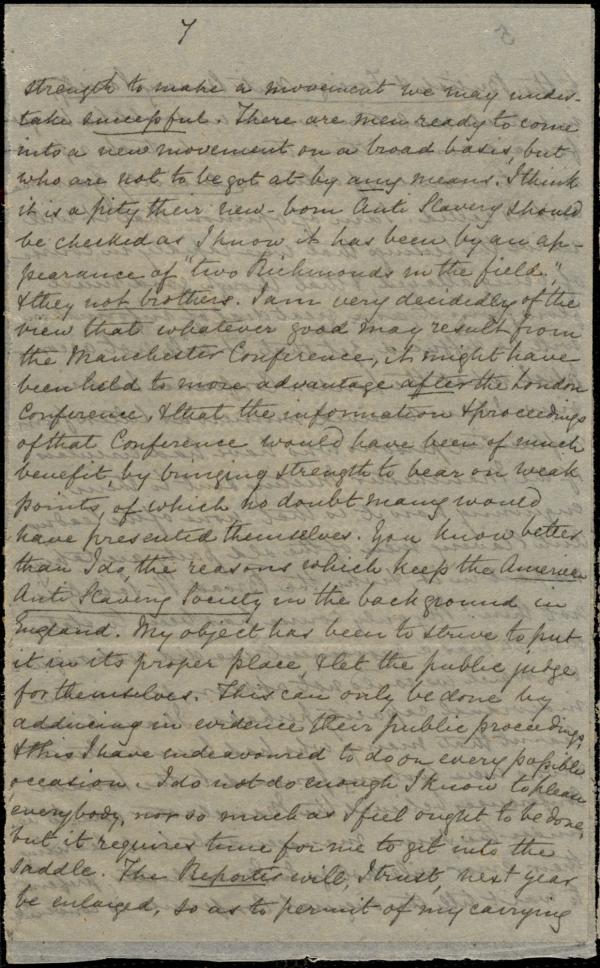 7
5
strength to make a movement we may under-
take successful. There are men ready to come
into a new movement on a broad basis, but
who are not to be got at by any means. I think
it is a pity their new-born Anti Slavery should
be checked as I know it has been by an ap-
pearance of "two Richmonds in the field,"
& they not brothers. I am very decidedly of the
view that whatever good may result from
the Manchester Conference, it might have
been held to more advantage after the London
Conference, & that the information & proceedings
of that Conference would have been of much
benefit, by bringing strength to bear on weak
points, of which no doubt many would
have presented themselves. You know better
than I do, the reasons which keep the American
Anti Slavery Society in the background in
England. My object has been to strive to put
it in its proper place, & let the public judge
for themselves. This can only be done by
adducing in evidence their public proceedings,
& this I have endeavoured to do on every possible
occasion. I do not do enough I know to please
everybody, nor so much as I feel ought to be done,
but it requires time for me to get into the
saddle. The Reporter will, I trust, next year
be enlarged, so as to permit of my carrying